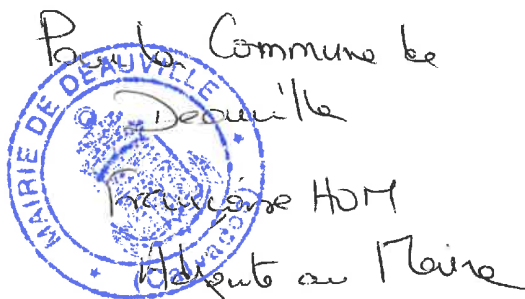 Pour la Commune de
Deauville
Françoise HOM
Adjointe au Maire
MAIRIE DE DEAUVILLE
(CALVADOS)